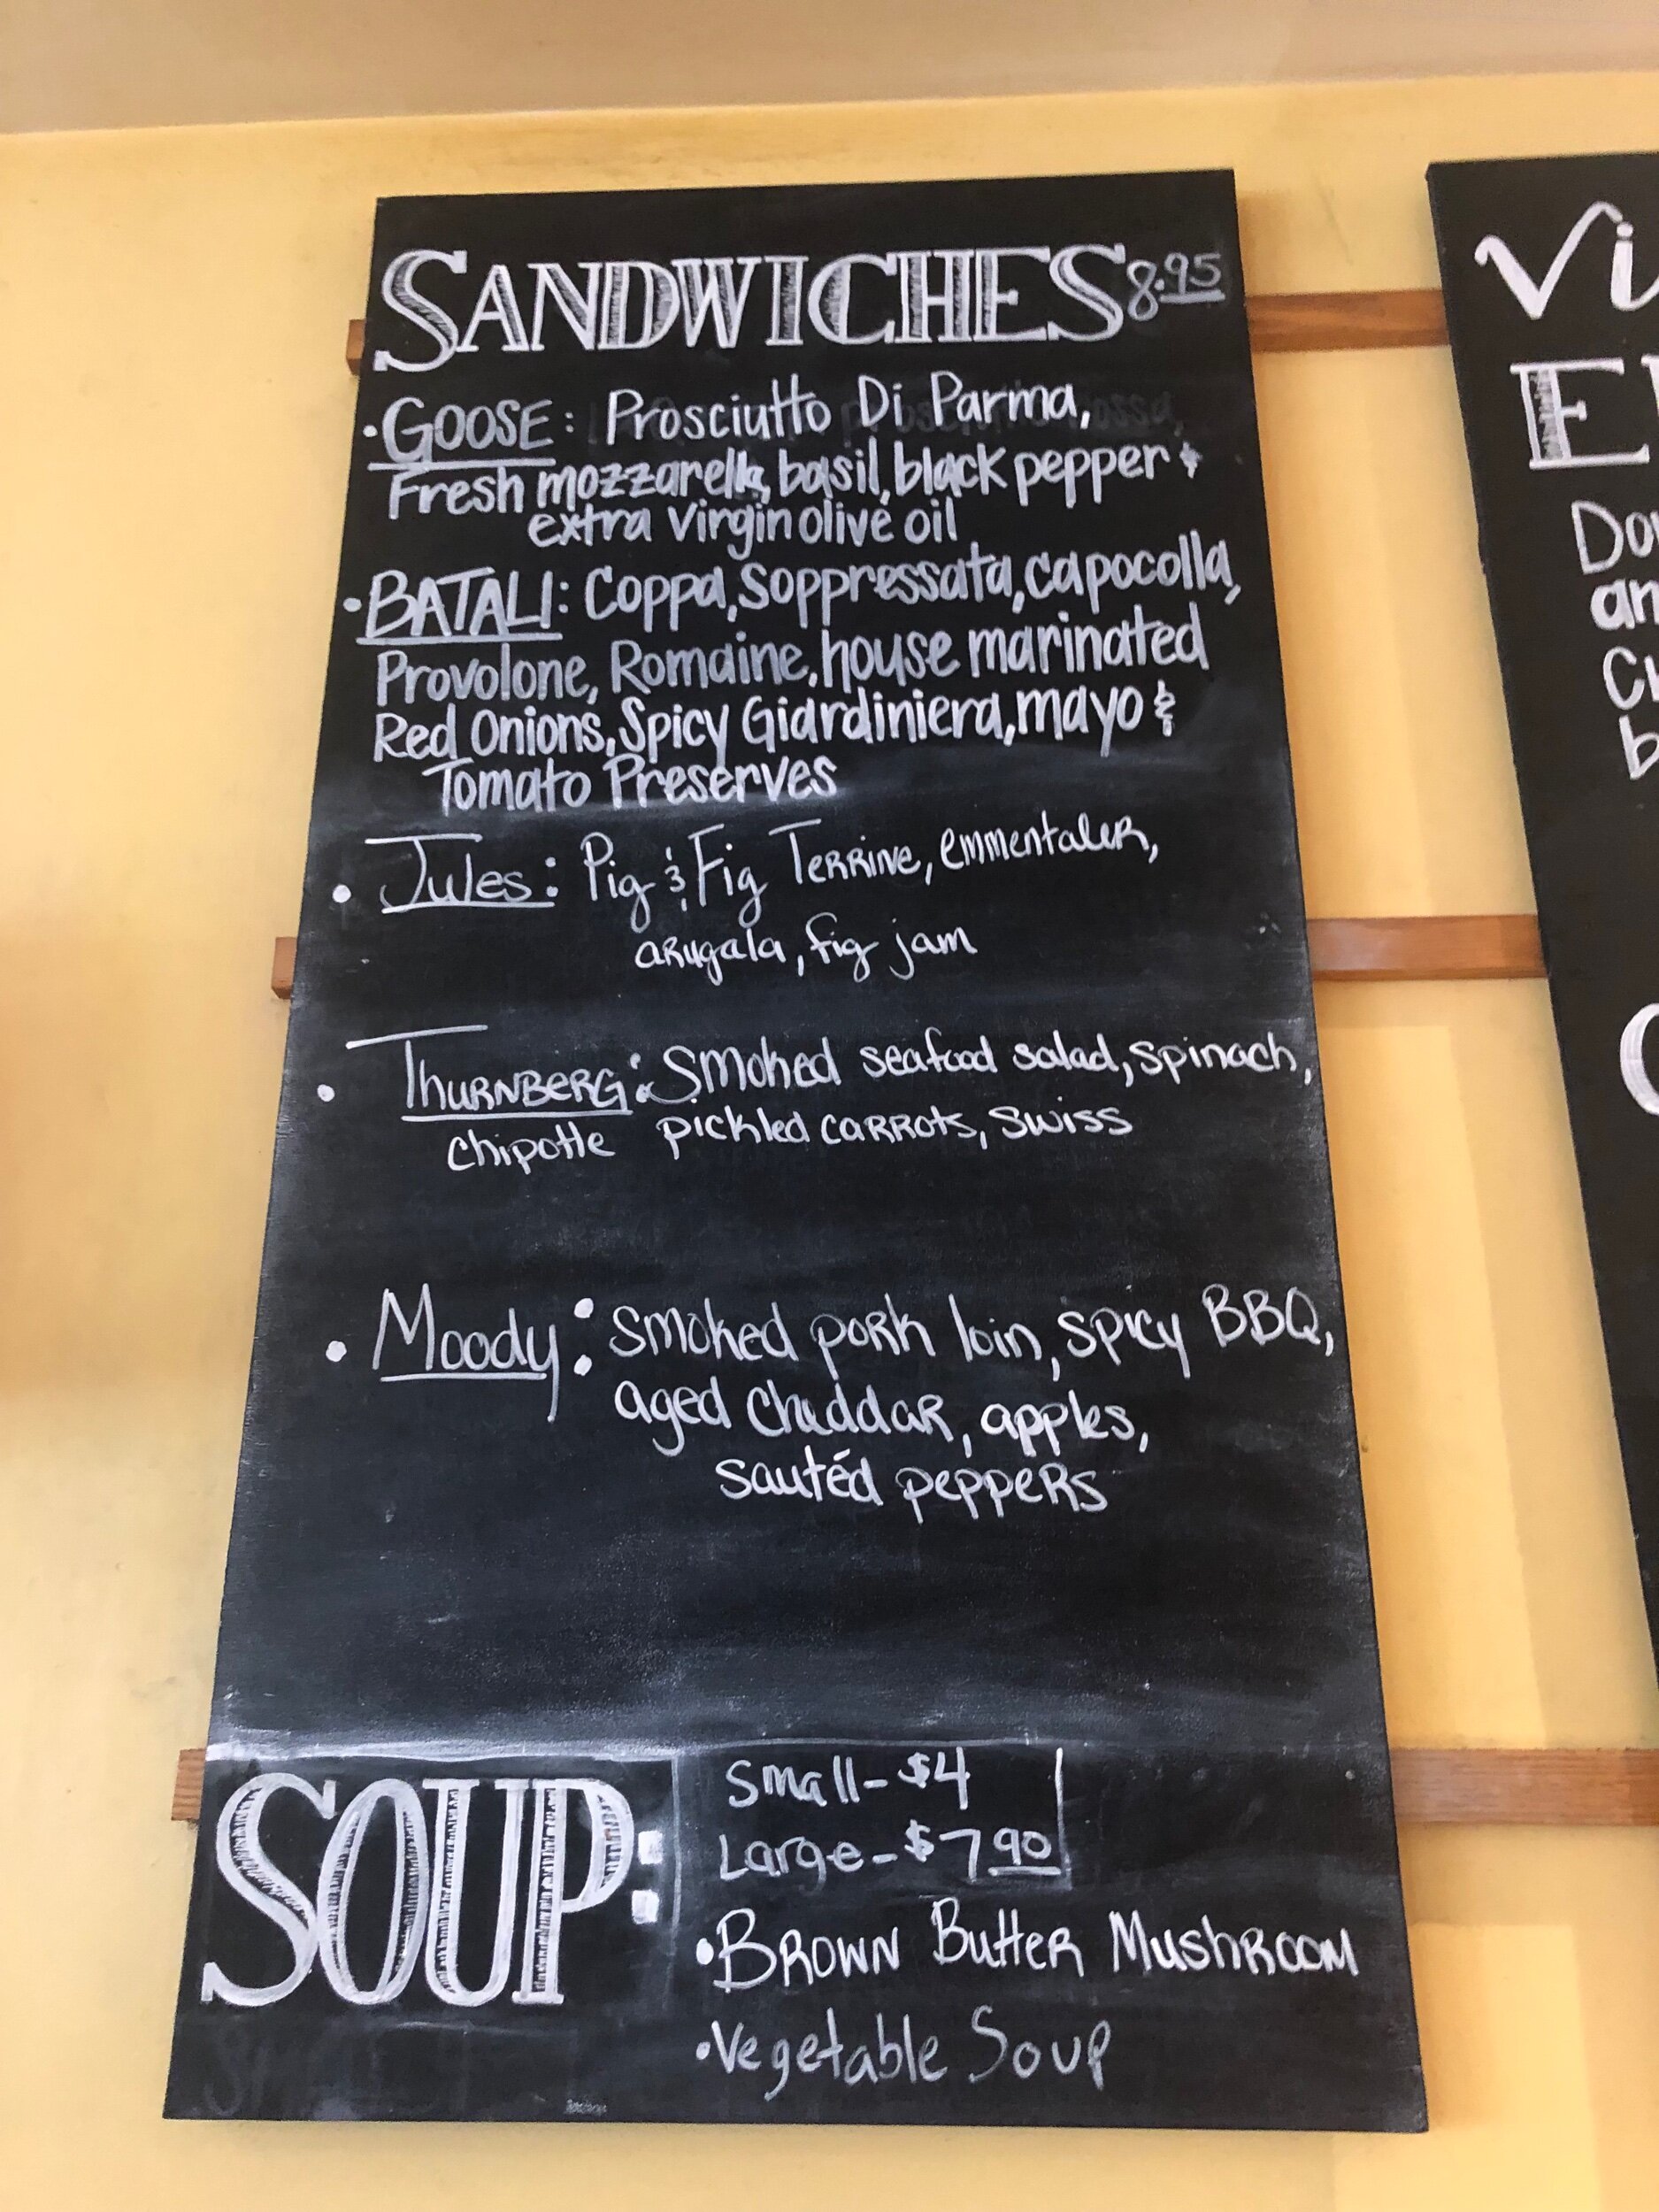 SANDWICHES 8.95
• GOOSE: Prosciutto Di Parma,
Fresh mozzarella, basil, black pepper &
extra virgin olive oil
• BATALI: Coppa, Soppressata, capocolla,
Provolone, Romaine, house marinated
Red Onions, Spicy Giardiniera, mayo &
Tomato Preserves
• Jules: Pig & Fig Terrine, emmentaler,
arugala, fig jam
• Thurnberg: Smoked seafood salad, spinach,
chipotle pickled carrots, swiss
• Moody: smoked pork loin, spicy BBQ,
aged cheddar, apples,
sautéd peppers
SOUP:
Small - $4
Large - $7.90
• Brown Butter Mushroom
• Vegetable Soup
Vi
E
an